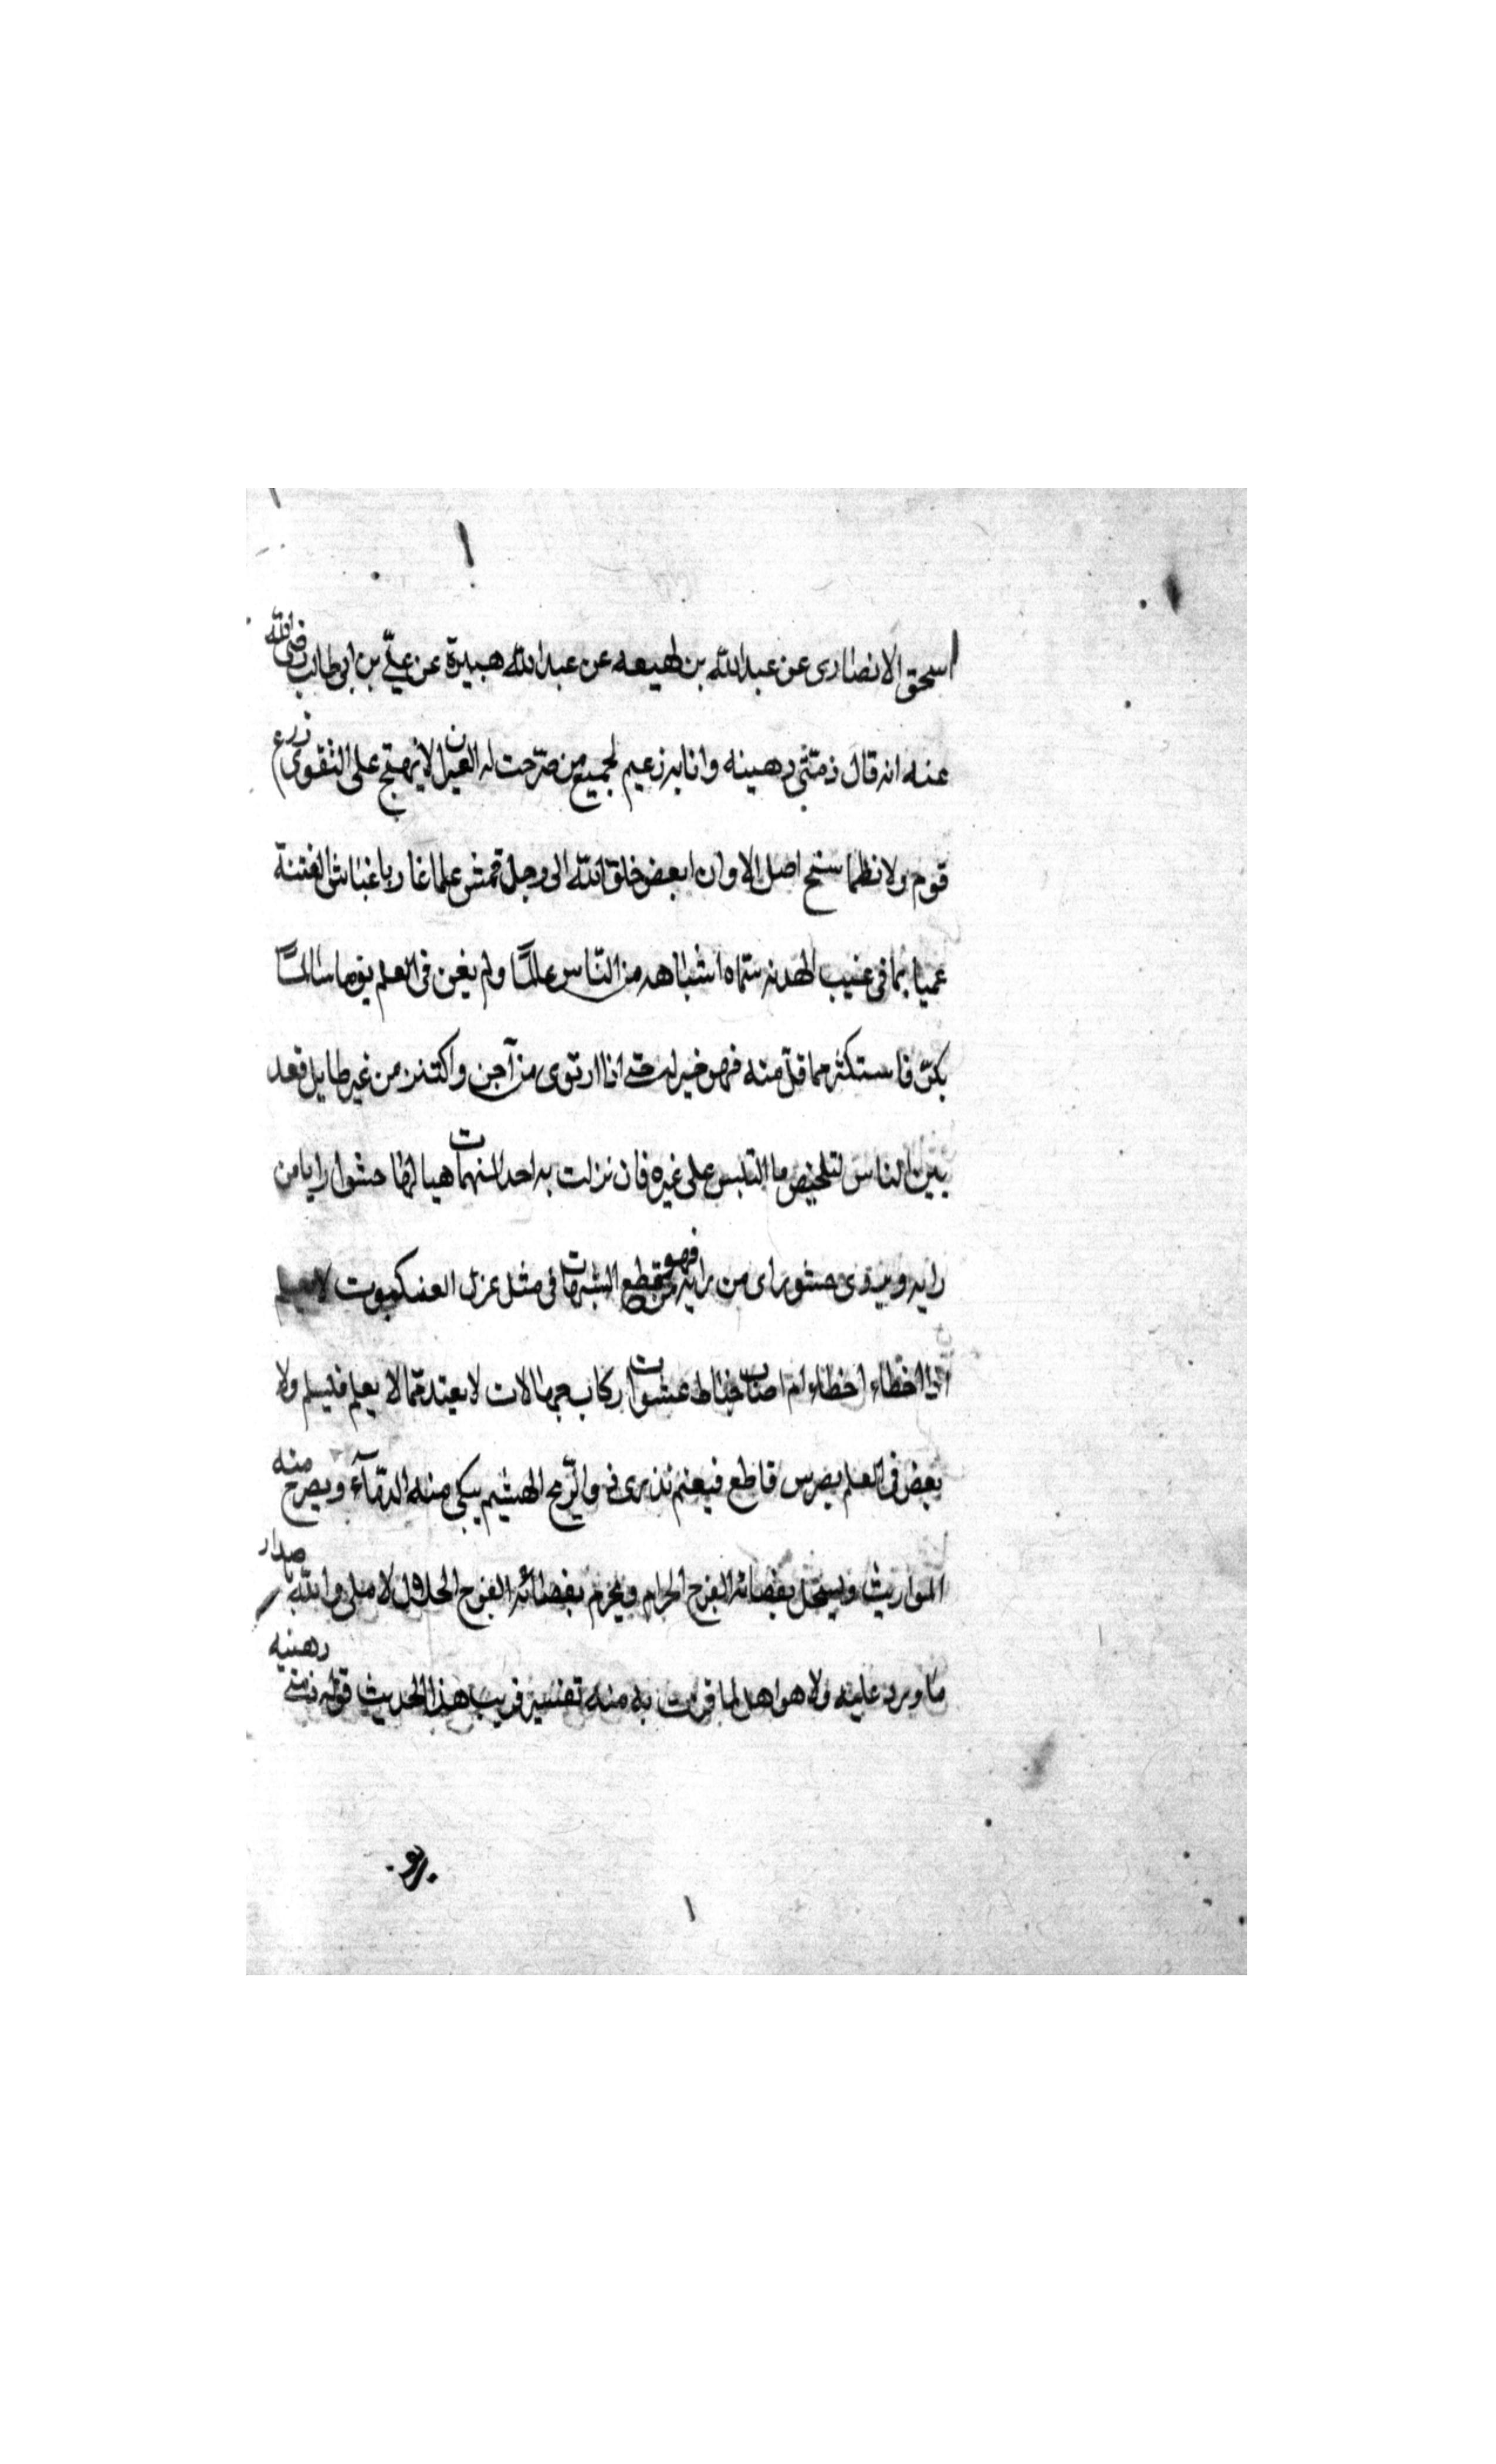 اسحق الانصارى عن عبدالله بن لهيعه عن عبدالله هبيرة عن علىّ بن ابى طالب رضى الله
عنه انه قال ذمّتى رهينه وانا به زعيم لجميع من صرّحت له العبر ان لا يهيج على التقوى زرع
قوم ولا نظما سنخ اصل الا وان ابعض خلق الله الى رجل قمش علما غارا باغباش الفتنة
عميا بما فى غيب الهدنه سمّاه اشباهه من النّاس عالمًا ولم يغن فى العلم يوما سالمًا
بكّر فاستكثر مما قلّ منه فهو خير حتى اذا ارتوى من آجن واكتنز من غير طايل قعد
بين الناس لتلخيص ما التبس على غيره فان نزلت به احد المبهمات هيا لها حشوا رايا من
رايه حشو راى من رايه فهو من قطع الشبهات فى مثل غزل العنكبوت لا يعلم
اذا اخطاء اخطاء ام اصاب خباط عشوات ركاب جهالات لا يعتد مما لا يعلم فليسلم ولا
بعض فى العلم بضرس قاطع فيغنم تذرى ذرو الرّيح الهشيم يبكى منه الدمآء ويصرخ منه
المواريث ويستحل بقضائه الفرج الحرام ويحرم بقضائه الفرج الحلال لا ملى والله باصدار
ما ورد عليه ولا هو اهل لما قرت به منه تفسير غريب هذا الحديث قوله ذمتى رهنيه